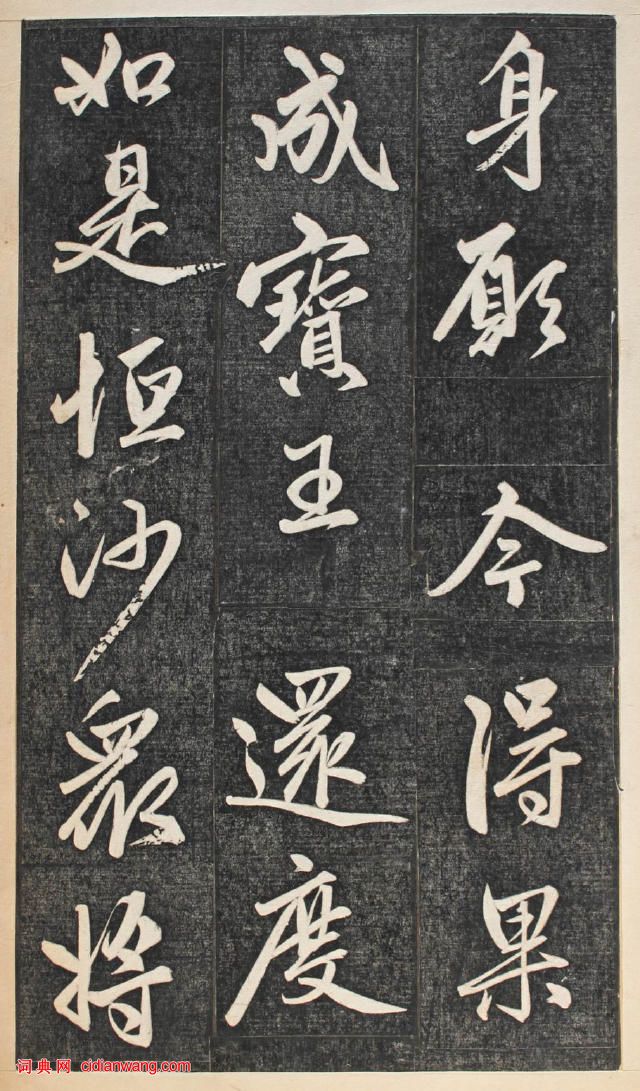 身願今得果
成寶王還度
如是恒沙衆將
词典网 cidianwang.com